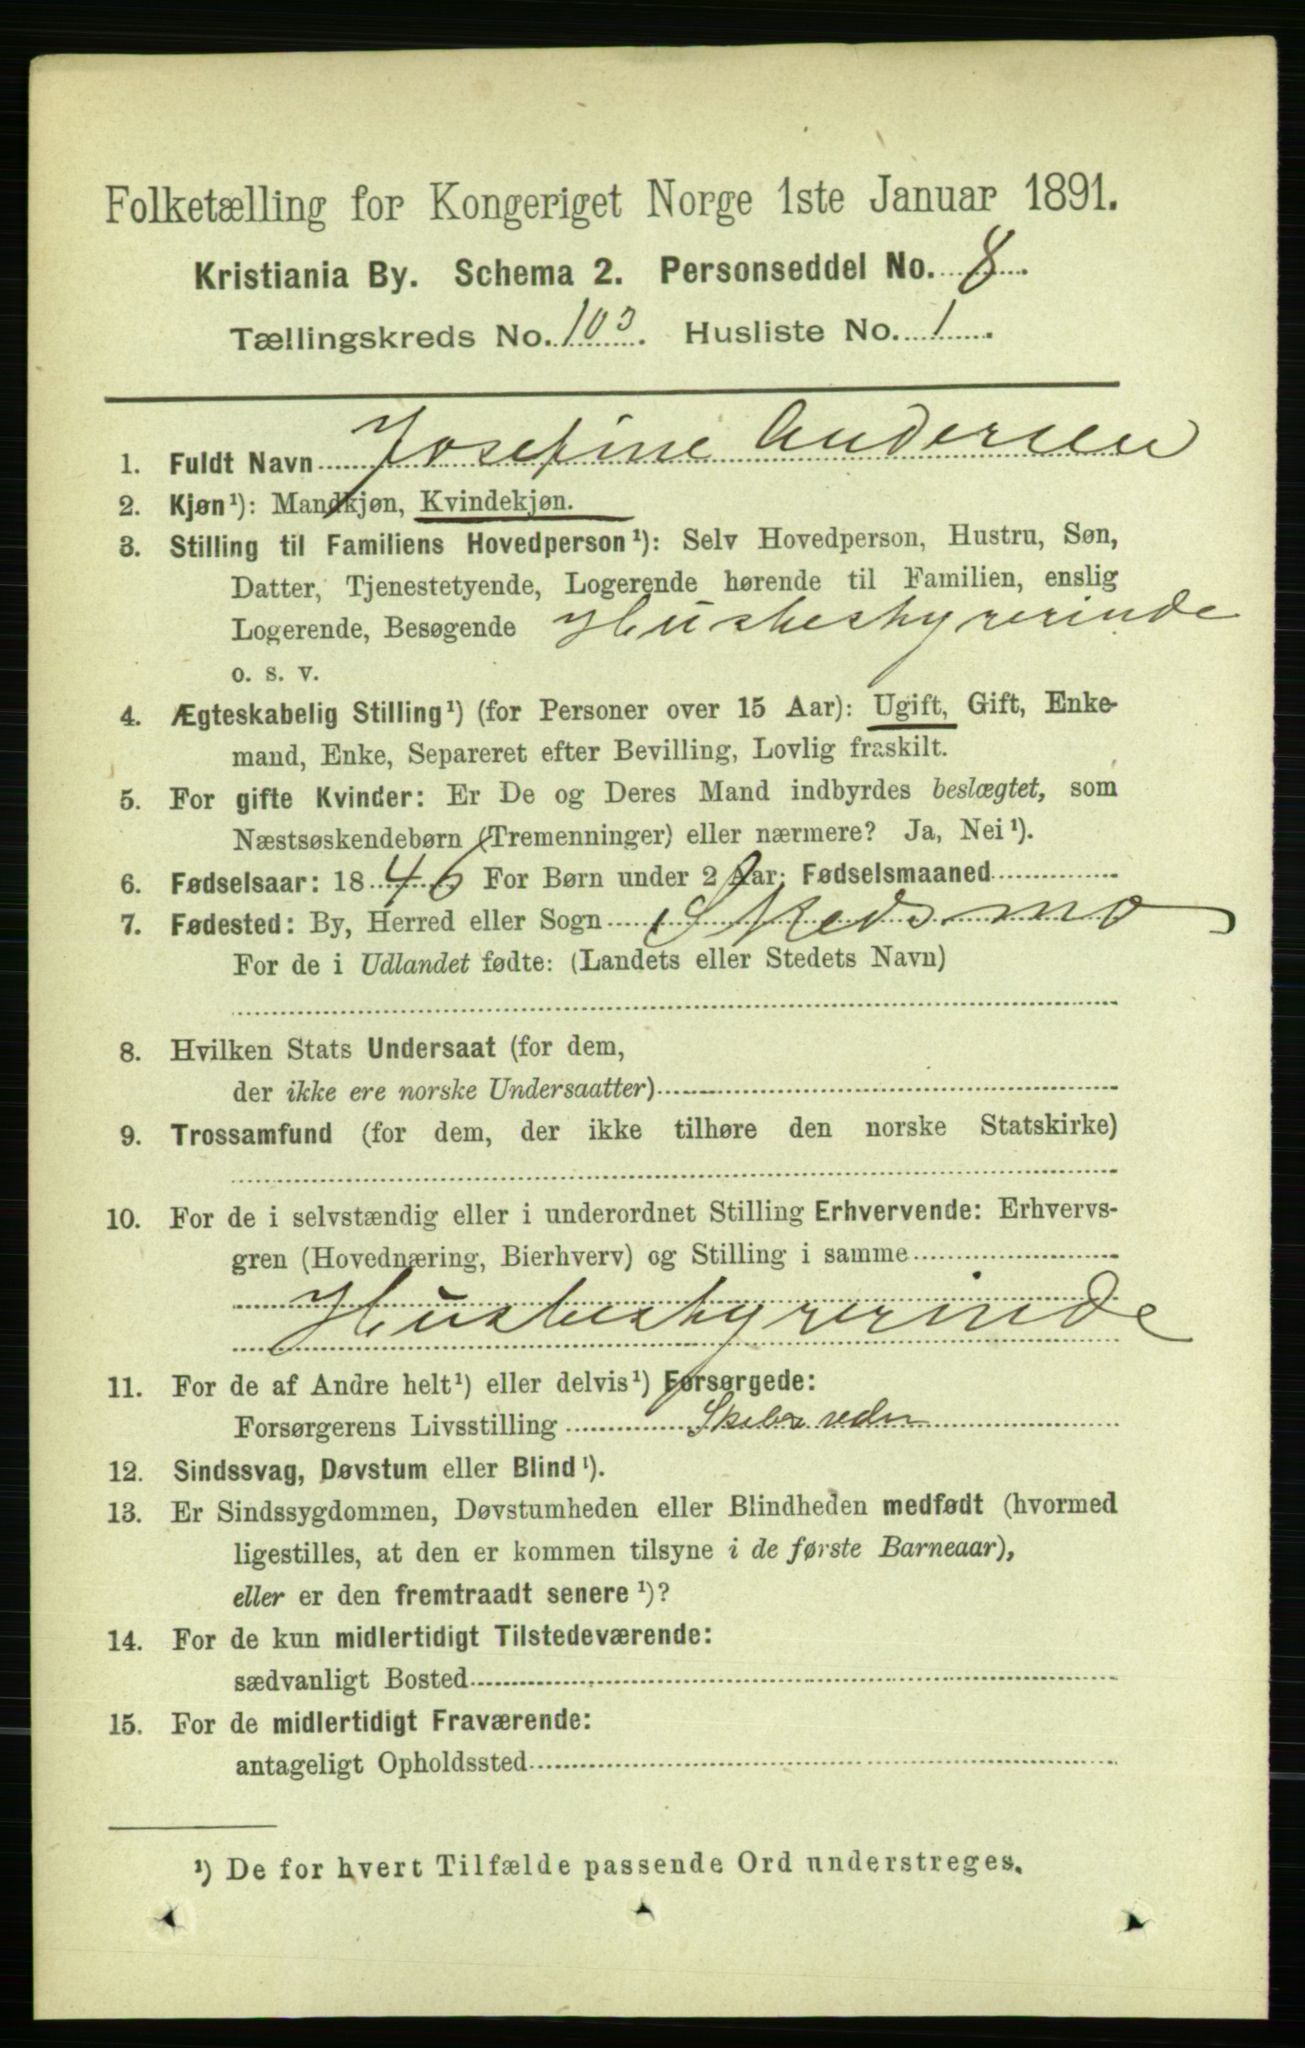 Folketælling for Kongeriget Norge 1ste Januar 1891.
Kristiania By. Schema 2. Personseddel No. 8.
Tællingskreds No. 103. Husliste No. 1.
1. Fuldt Navn Josefine Andersen
2. Kjøn¹): Mandkjøn, Kvindekjøn.
3. Stilling til Familiens Hovedperson¹): Selv Hovedperson, Hustru, Søn,
Datter, Tjenestetyende, Logerende hørende til Familien, enslig
Logerende, Besøgende Husbestyrerinde
o. s. v.
4. Ægteskabelig Stilling¹) (for Personer over 15 Aar): Ugift, Gift, Enke-
mand, Enke, Separeret efter Bevilling, Lovlig fraskilt.
5. For gifte Kvinder: Er De og Deres Mand indbyrdes beslægtet, som
Næstsøskendebørn (Tremenninger) eller nærmere? Ja, Nei¹).
6. Fødselsaar: 1846 For Børn under 2 Aar: Fødselsmaaned
7. Fødested: By, Herred eller Sogn Skedsmo
For de i Udlandet fødte: (Landets eller Stedets Navn)
8. Hvilken Stats Undersaat (for dem,
der ikke ere norske Undersaatter)
9. Trossamfund (for dem, der ikke tilhøre den norske Statskirke)
10. For de i selvstændig eller i underordnet Stilling Erhvervende: Erhvervs-
gren (Hovednæring, Bierhverv) og Stilling i samme
Husbestyrerinde
11. For de af Andre helt¹) eller delvis¹) Forsørgede:
Forsørgerens Livsstilling Skibsreder
12. Sindssvag, Døvstum eller Blind¹).
13. Er Sindssygdommen, Døvstumheden eller Blindheden medfødt (hvormed
ligestilles, at den er kommen tilsyne i de første Barneaar),
eller er den fremtraadt senere¹)?
14. For de kun midlertidigt Tilstedeværende:
sædvanligt Bosted
15. For de midlertidigt Fraværende:
antageligt Opholdssted
¹) De for hvert Tilfælde passende Ord understreges.